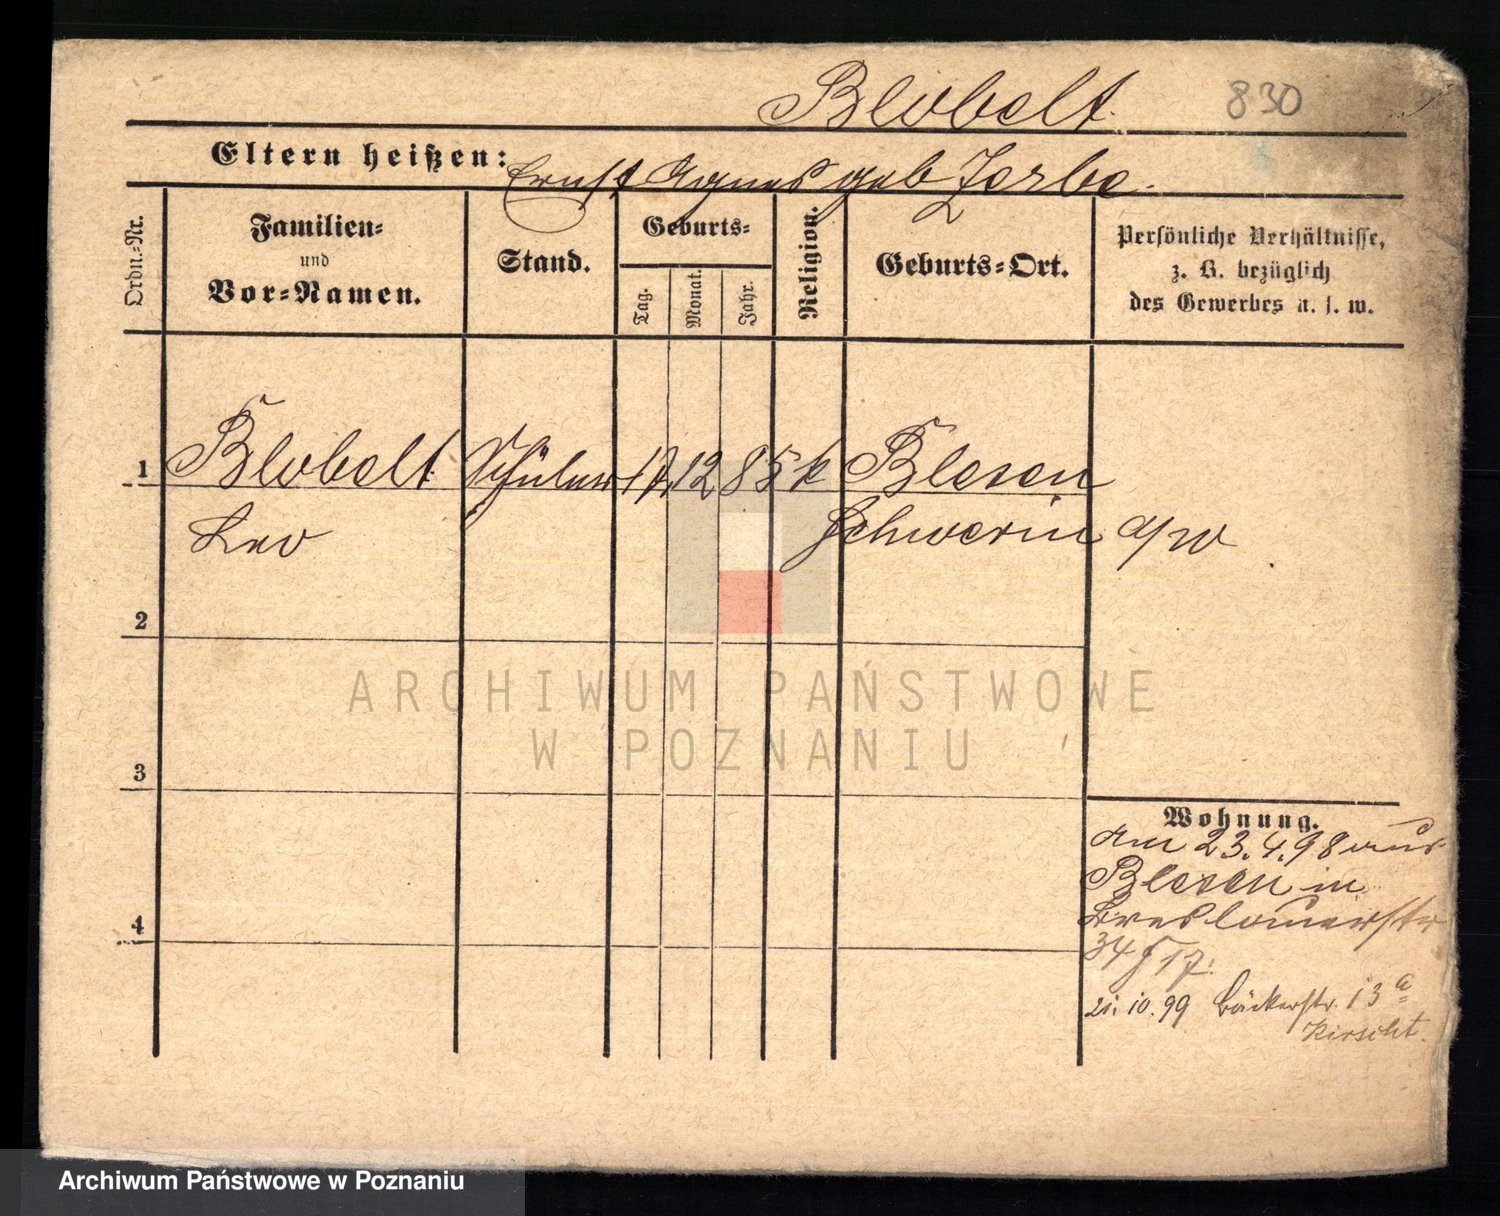 Blobelt. 830
Eltern heißen: Ernst Agnes geb Zerbe.
Ordn.-Nr.
Familien-
und
Vor-Namen.
Stand.
Geburts-
Tag.
Monat.
Jahr.
Religion.
Geburts-Ort.
Persönliche Verhältnisse,
z. B. bezüglich
des Gewerbes u. s. w.
1 Blobelt Schüler 12 85 k Blesen
Leo Schwerin a/w
2
ARCHIWUM PAŃSTWOWE
W POZNANIU
3
Wohnung.
am 23.4.98 aus
Blesen in
Breslauerstr
34
4
21.10.99 Bäckerstr. 13a
Kirscht.
Archiwum Państwowe w Poznaniu